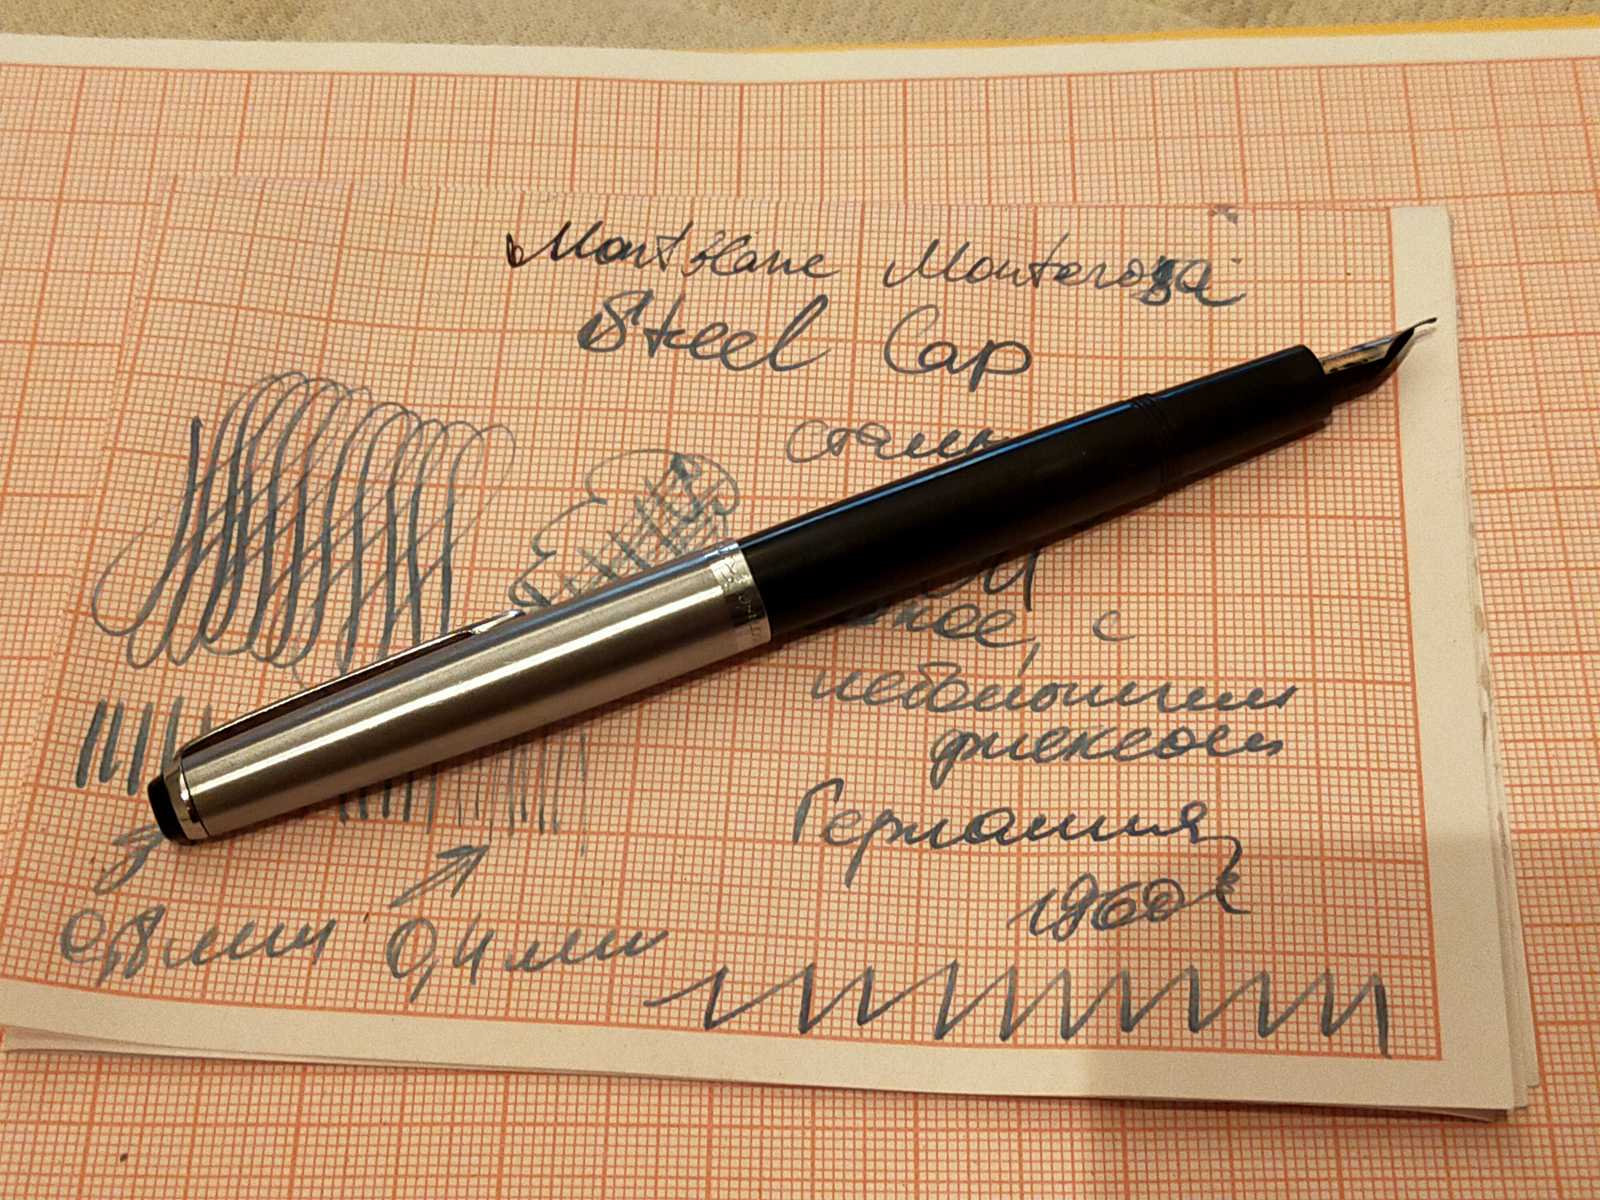 Montblanc Monterosa
Steel Cap
с
небольшим
флексом
Германия
1960е
0,8 мм 0,4 мм